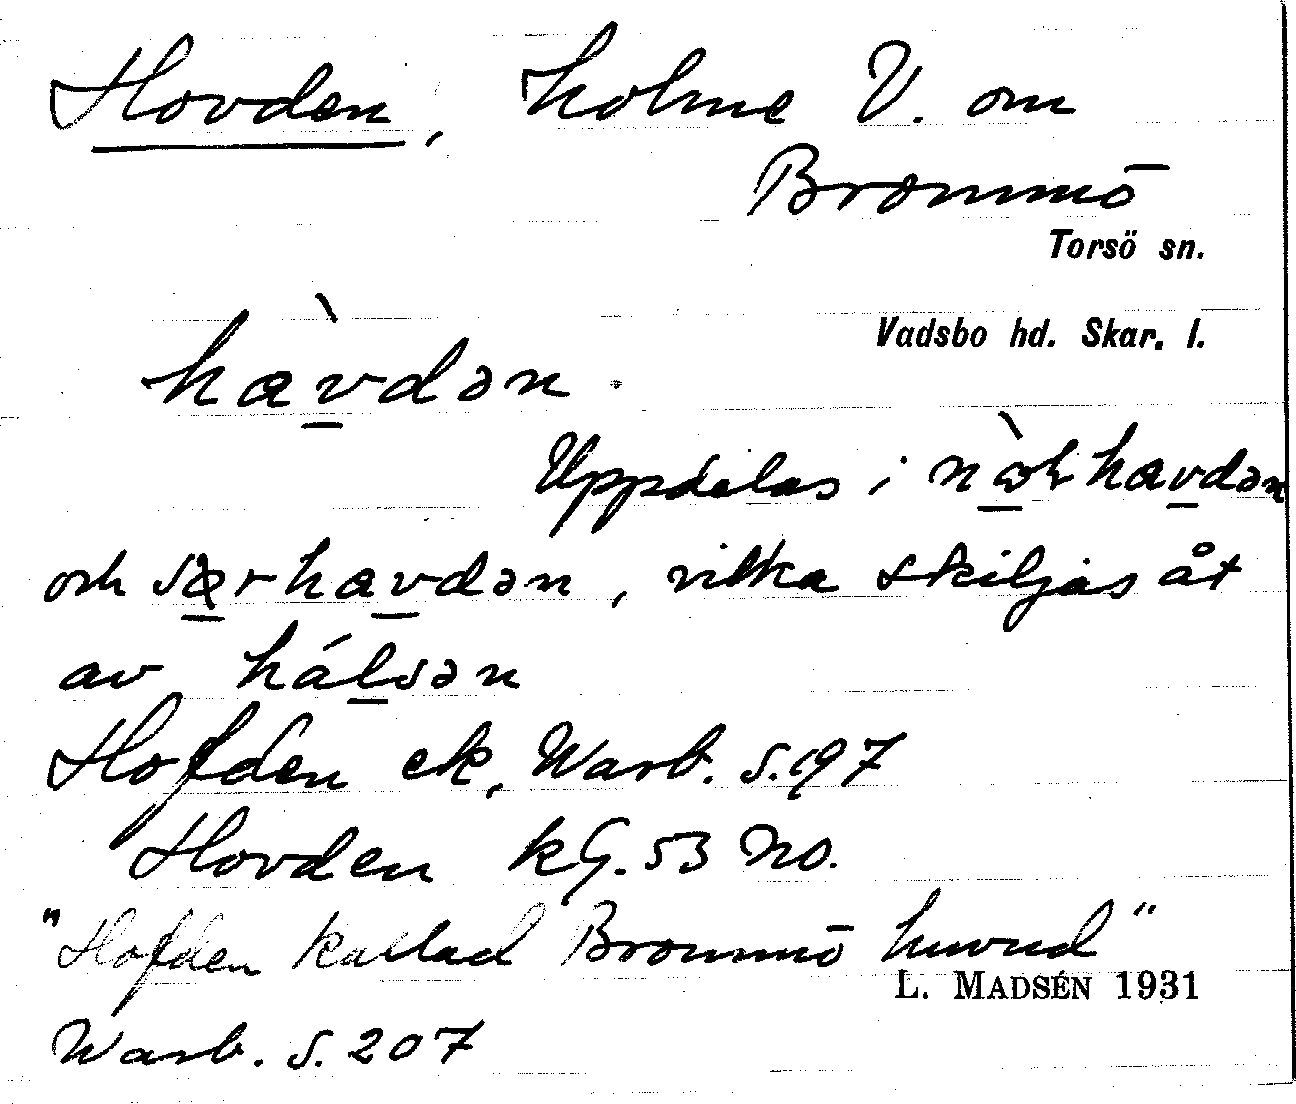 Hovden, holme V. om
Brommö
Torsö sn.
Vadsbo hd. Skar. l.
hàvdən.
Uppdelas i nòrhavdən
och særhavdən, vilka skiljas åt
av hálsən
Hofden ek, Warb. s. 197
Hovden kG. 53 NO.
"Hofden kallad Brommö huvud"
L. MADSÉN 1931
Warb. s. 207